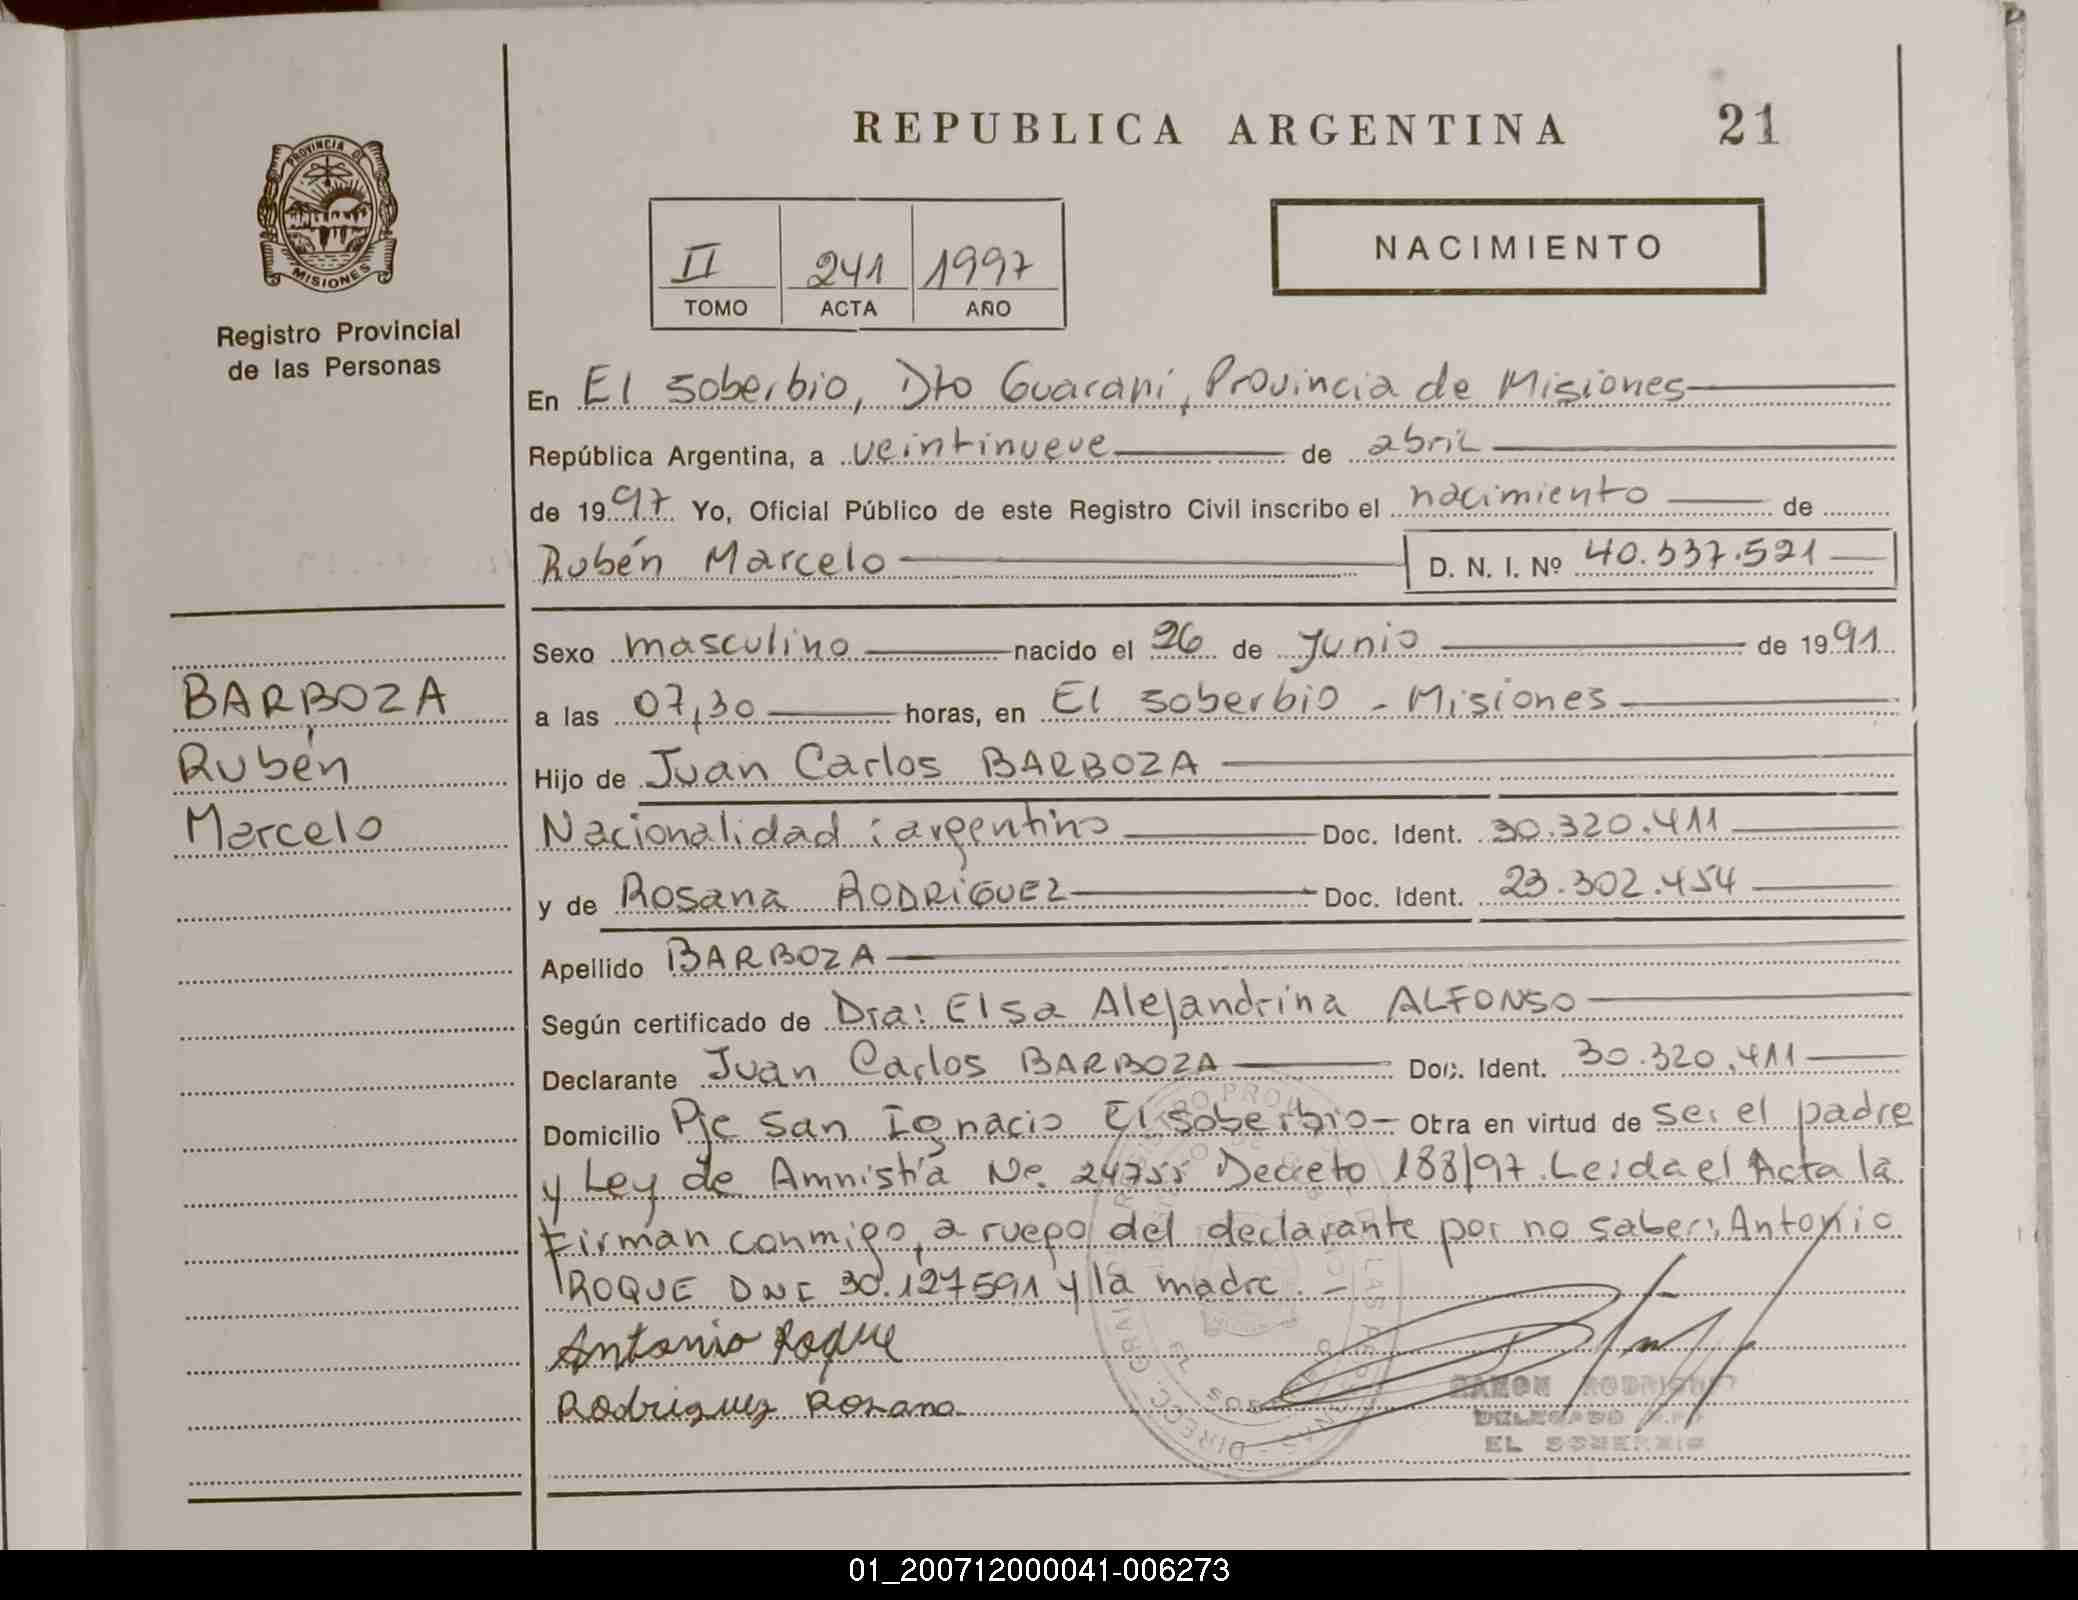 REPUBLICA ARGENTINA 21
PROVINCIA DE
MISIONES
Registro Provincial
de las Personas
II 241 1997
TOMO ACTA AÑO
NACIMIENTO
En El Soberbio, Dto Guaraní, Provincia de Misiones
República Argentina, a veintinueve de abril
de 1997 Yo, Oficial Público de este Registro Civil inscribo el nacimiento de
Rubén Marcelo D. N. I. Nº 40.337.521
Sexo masculino nacido el 26 de Junio de 1991
a las 07,30 horas, en El Soberbio - Misiones
Hijo de Juan Carlos BARBOZA
Nacionalidad: argentino Doc. Ident. 30.320.411
y de Rosana RODRIGUEZ Doc. Ident. 23.302.454
Apellido BARBOZA
Según certificado de Dra: Elsa Alejandrina ALFONSO
Declarante Juan Carlos BARBOZA Doc. Ident. 30.320.411
Domicilio Pje San Ignacio El Soberbio - Otra en virtud de ser el padre
y Ley de Amnistía Nº. 24755 Decreto 188/97. Leida el Acta la
Firman conmigo, a ruego del declarante por no saber; Antonio
ROQUE DNI 30.127591 y la madre. -
Antonio Roque
Rodriguez Rosana
BARBOZA
Rubén
Marcelo
RAMON
DELEGADO
EL SOBERBIO
01_200712000041-006273